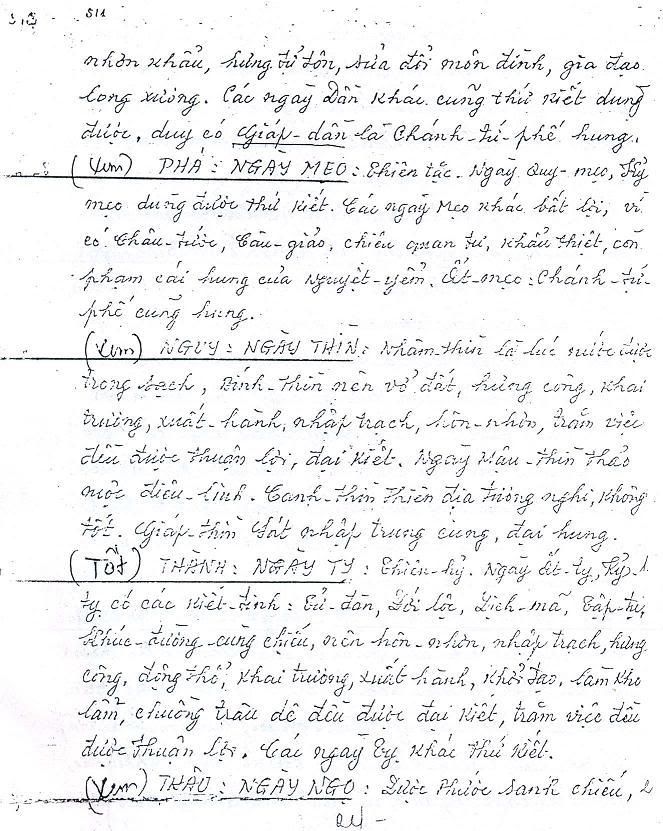 511
nhơn khẩu, hưng tử tôn, sửa đổi môn đình, gia đạo
long xương. Các ngày Dần khác cũng thứ kiết dụng
được, duy có Giáp-dần là Chánh-tứ-phế hung.
(Xem) PHÁ: NGÀY MẸO: Thiên tặc. Ngày Quý-mẹo, Kỷ
mẹo dụng được thứ kiết. Các ngày Mẹo khác bất lợi, vì
có Châu-tước, Câu-giảo, chiêu quan tư, khẩu thiệt, còn
phạm cái hung của Nguyệt-yểm. Ất-mẹo: Chánh-tứ-
phế cũng hung.
(Xem) NGUY: NGÀY THÌN: Nhâm-thìn là lúc nước được
trong sạch, Bính-thìn nên vỡ đất, hưng công, khai
trương, xuất-hành, nhập trạch, hôn-nhơn, trăm việc
đều được thuận lợi, đại kiết. Ngày Mậu-thìn thảo
mộc điêu-linh. Canh-thìn thiên địa tương nghi, không
tốt. Giáp-thìn Sát nhập trung cung, đại hung.
(Tốt) THÀNH: NGÀY TỴ: Thiên-hỷ. Ngày Ất-tỵ, Kỷ-
tỵ có các kiết-tinh: Tử-đàn, Đới lộc, Dịch-mã, Tập-tụ,
Khúc-đường-cùng chiếu, nên hôn-nhơn, nhập trạch, hưng
công, động thổ, khai trương, xuất hành, khởi tạo, làm kho
lẫm, chuồng trâu dê đều được đại kiết, trăm việc đều
được thuận lợi. Các ngày Tỵ khác thứ kiết.
(Xem) THÂU: NGÀY NGỌ: Được Phước sanh chiếu, 2
24 -